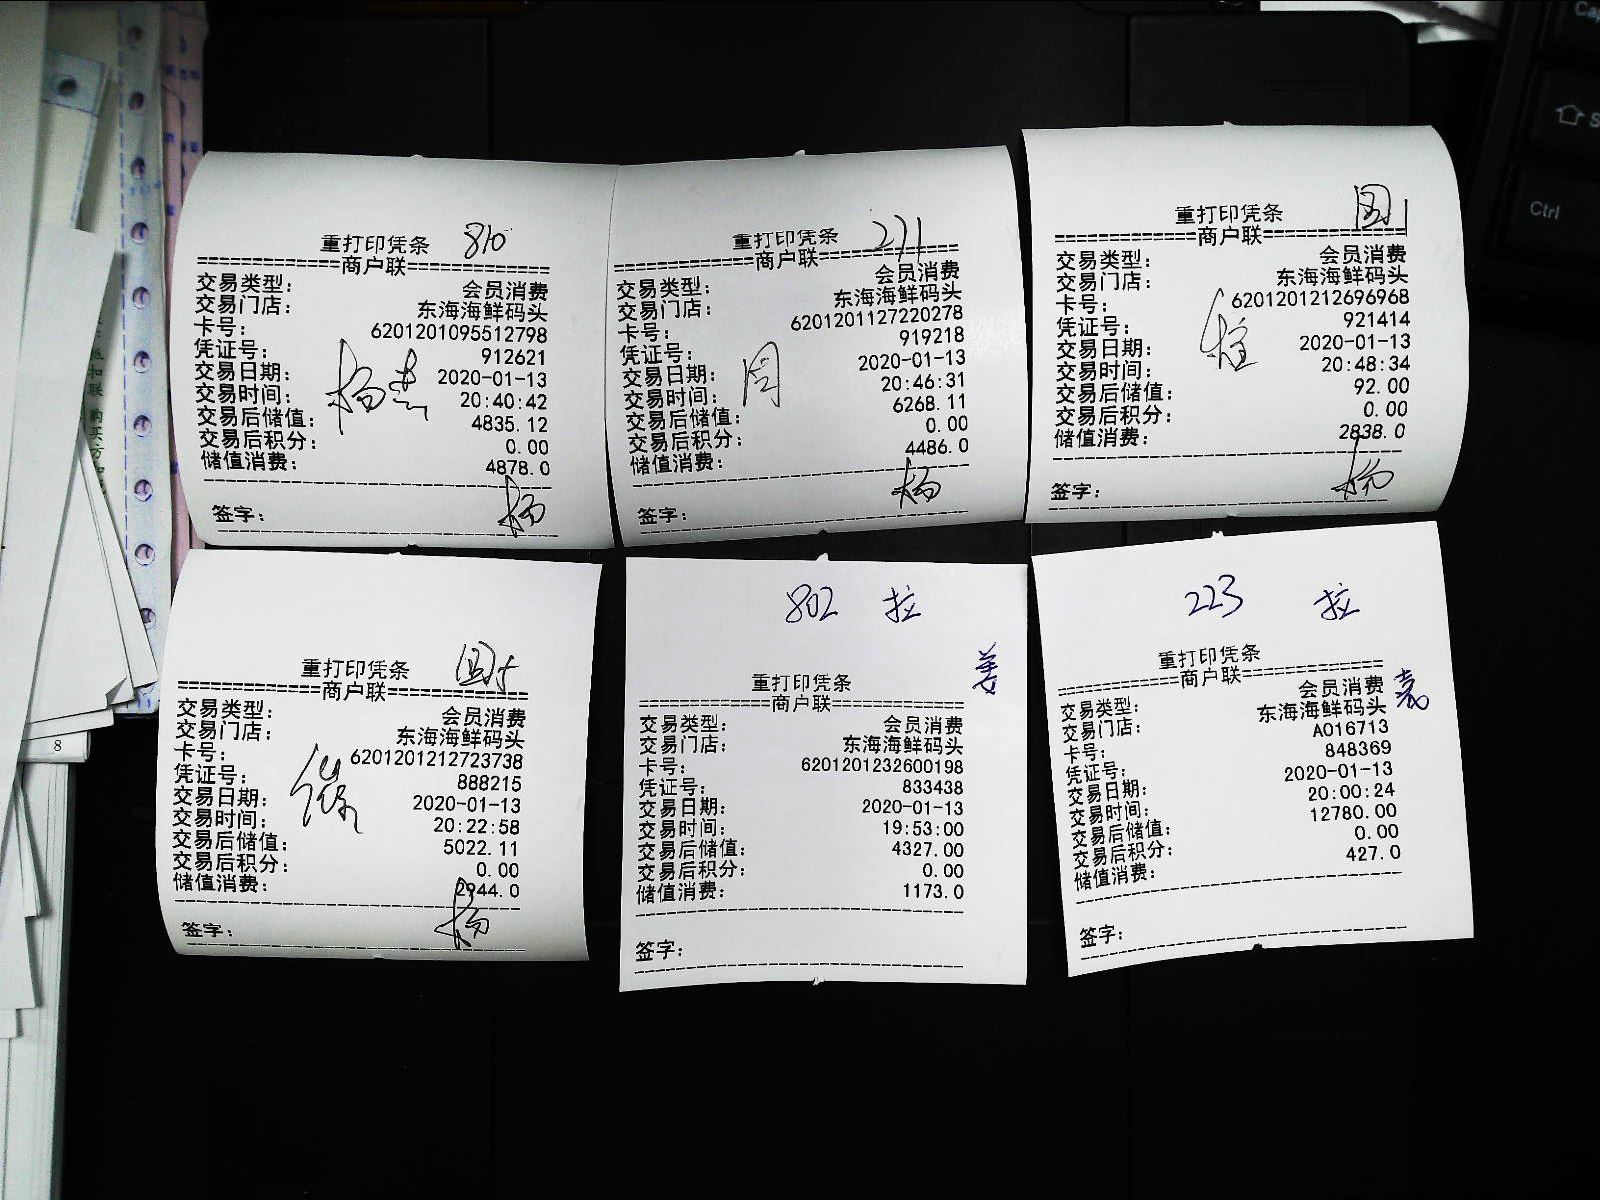 重打印凭条 810
=============商户联=============
交易类型: 会员消费
交易门店: 东海海鲜码头
卡号: 6201201095512798
凭证号: 912621
交易日期: 2020-01-13
交易时间: 20:40:42
交易后储值: 4835.12
交易后积分: 0.00
储值消费: 4878.0
签字: 杨
重打印凭条 271
=============商户联=============
交易类型: 会员消费
交易门店: 东海海鲜码头
卡号: 6201201127220278
凭证号: 919218
交易日期: 2020-01-13
交易时间: 20:46:31
交易后储值: 6268.11
交易后积分: 0.00
储值消费: 4486.0
周
签字: 杨
重打印凭条
=============商户联=============
交易类型: 会员消费
交易门店: 东海海鲜码头
卡号: 6201201212696968
凭证号: 921414
交易日期: 2020-01-13
交易时间: 20:48:34
交易后储值: 92.00
交易后积分: 0.00
储值消费: 2838.0
签字: 杨
重打印凭条
=============商户联=============
交易类型: 会员消费
交易门店: 东海海鲜码头
卡号: 6201201212723738
凭证号: 888215
交易日期: 2020-01-13
交易时间: 20:22:58
交易后储值: 5022.11
交易后积分: 0.00
储值消费: 2944.0
签字: 杨
802 拉
姜
重打印凭条
=============商户联=============
交易类型: 会员消费
交易门店: 东海海鲜码头
卡号: 6201201232600198
凭证号: 833438
交易日期: 2020-01-13
交易时间: 19:53:00
交易后储值: 4327.00
交易后积分: 0.00
储值消费: 1173.0
签字:
223 拉
重打印凭条
=============商户联=============
交易类型: 会员消费
交易门店: 东海海鲜码头
卡号: A016713
凭证号: 848369
交易日期: 2020-01-13
交易时间: 20:00:24
交易后储值: 12780.00
交易后积分: 0.00
储值消费: 427.0
签字:
Ctrl
8